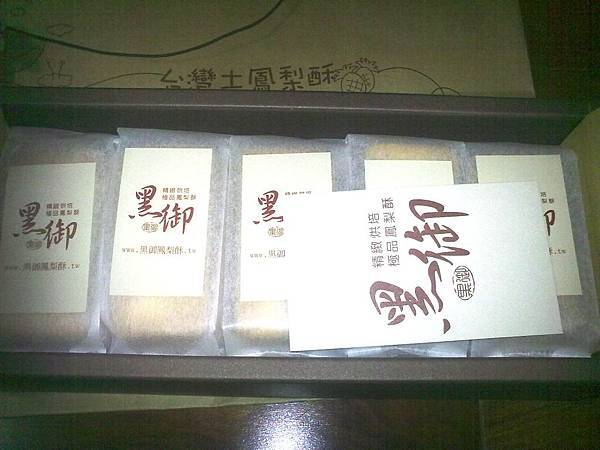 台灣土鳳梨酥
精緻烘培
極品鳳梨酥
黑御
www.黑御鳳梨酥.tw
精緻烘培
極品鳳梨酥
黑御
www.黑御鳳梨酥.tw
精緻烘培
黑
www.黑御
精緻烘培
極品鳳梨酥
黑御
黑御